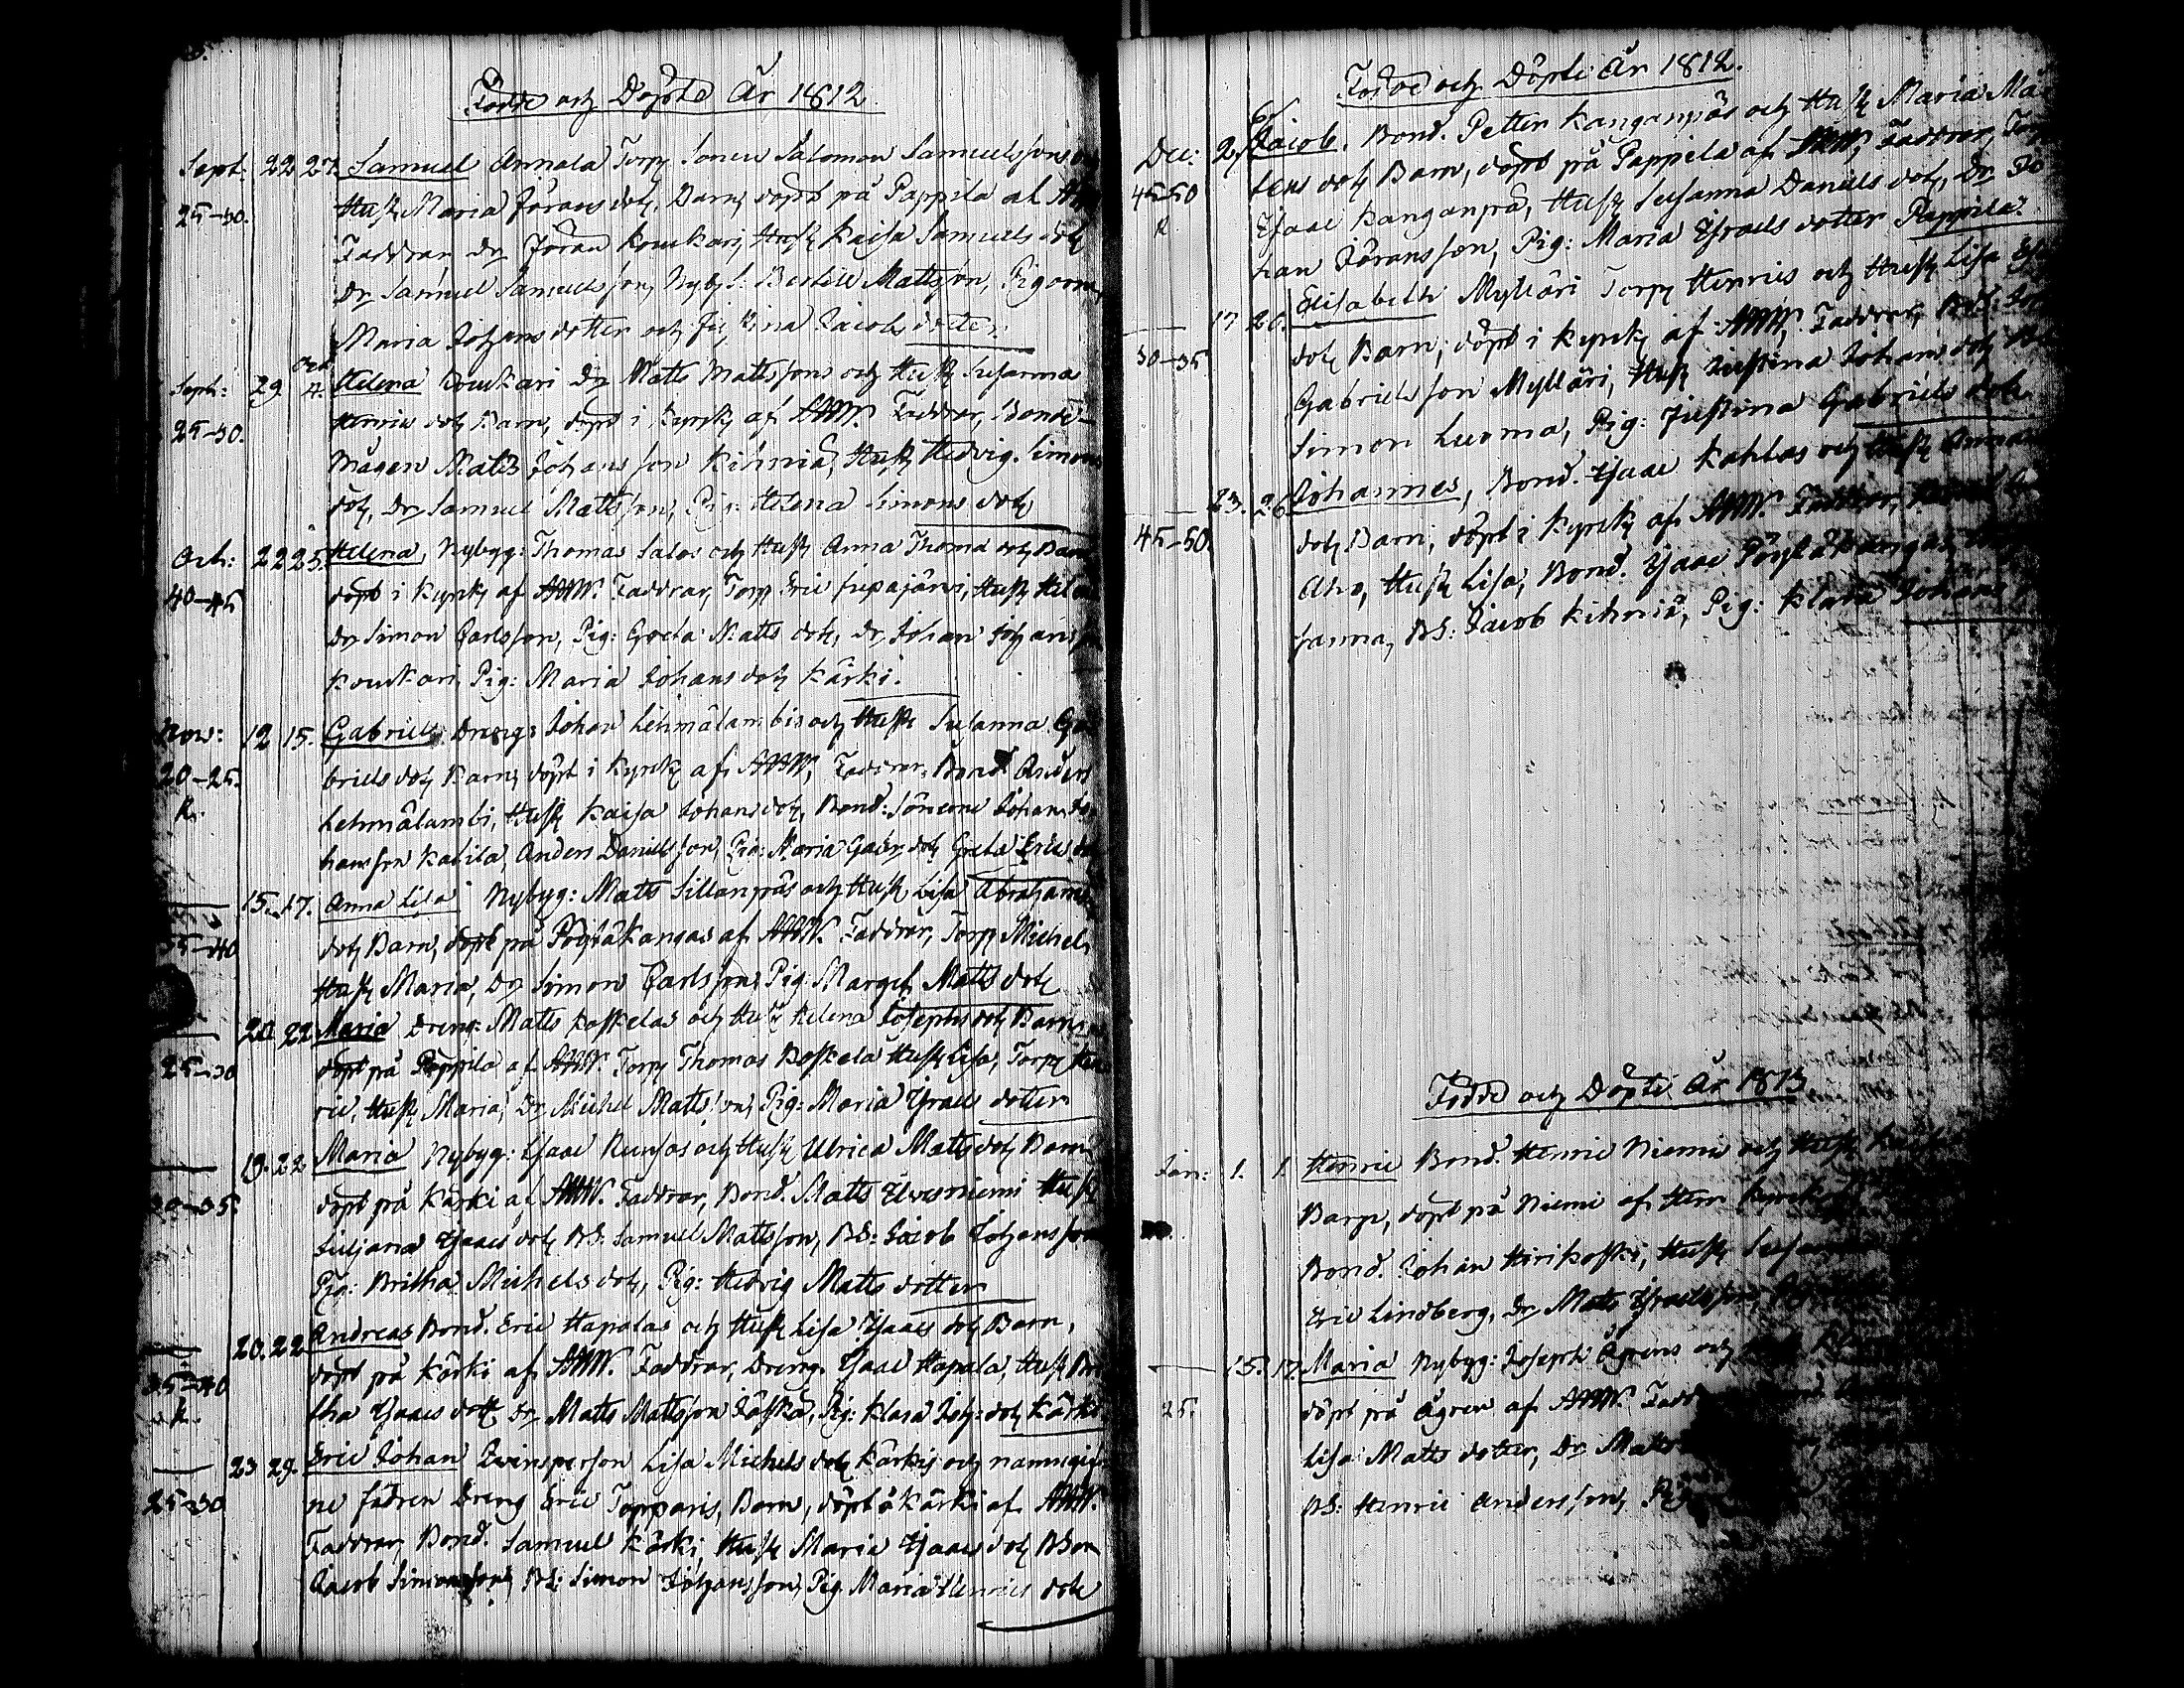 Födde och Döpte År 1812.
Sept: 22 27. Samuel Annala Torp. Sonen Salomon Samuelssons
25-30. Hust. Maria Jörans dott. Barn, döpt på Pappila af
Faddrar Dr Jöran Koukari, Hust. Kaisa Samuels dott
Dr Samuel Samuelsson, Nyb. S: Bertill Mattsson, Pigorna
Maria Johans dotter och Justina Jacobs dotter.
Sept: 29. Oct 4. Helena Koukari Dr Matts Mattssons och Hust. Susanna
25-30. Henrics dott. Barn, döpt i Kyrck. af AWW. Faddrar, Bonde-
mågen Matts Johansson Kihniä, Hust. Hedvig Simons
dott, Dr Samuel Mattsson, Pig: Helena Simons dott.
Oct: 22 25. Helena, Nybygg: Thomas Salos och Hust. Anna Thomæ dott. Barn
40-45 döpt i Kyrck. af AWW. Faddrar, Torp. Eric Jupajärvi, Hust.
Dr Simon Carlsson, Pig: Greta Matts dott, Dr Johan Johansson
Koukari, Pig: Maria Johans dott Kärki.
Nov: 12 15. Gabriel Dreng: Johan Lehmälambis och Hust. Susanna Ga-
20-25. briels dott. Barn, döpt i Kyrck. af AWW, Faddrar, Bond. Anders
K. Lehmälambi, Hust. Kaisa Johans dott, Bond: Sönerne Johan Jo-
hansson Katila, Anders Danielsson, Pig: Maria Gabr. dott, Greta Erics
— 15. 17. Anna Lisa Nybyg: Matts Sillanpäs och Hust. Lisa Abrahams
35-40 dott. Barn, döpt på Pöytäkangas af AWW. Faddrar, Torp. Michel,
Hust. Maria, Dr Simon Carlsson, Pig: Marget Matts dott
— 20. 22 Maria Dreng: Matts Koskelas och Hust. Helena Josephs dott. Barn,
25-30 döpt på Pappila af AWW. Torp. Thomas Koskela Hust. Lisa, Torp. Hen-
ric, Hust. Maria, Dr Michel Mattsson, Pig: Maria Israels dotter
— 19. 22 Maria Nybyg: Isaac Runsas och Hust. Ulrica Matts dott. Barn
30-35. döpt på Kärki af AWW. Faddrar, Bond. Matts Elvesniemi Hust.
Juljana Isaacs dott, BS: Samuel Mattsson, BS: Jacob Johansson
Pig: Britha Michels dott, Pig: Hedvig Matts dotter
— 20. 22 Andreas Bond. Eric Hapalas och Hust. Lisa Isaacs dott. Barn,
35-40 döpt på Kärki af AWW. Faddrar, Dreng. Isaac Hapala, Hust. Bri-
K. tha Isaacs dott Dr Matts Mattsson Jäskä, Pig: Klara Joh: dott Kärki
— 23 29. Eric Johan Qvinsperson Lisa Michels dott Kärkis och namngif-
25-30 ne fadren Dreng Eric Topparis, Barn, döpt å Kärki af AWW.
Faddrar, Bond. Samuel Kärki, Hust. Maria Isaacs dott BSon
Jacob Simonsson, BS: Simon Johansson, Pig Maria Henrics dott
Födde och Döpte År 1812.
Dec: 2, 6 Jacob. Bond. Petter Kanganpäs och Hust. Maria
45-50 tens dott. Barn, döpt på Pappila af AWW, Faddrar, Torp.
K Isaac Kanganpää, Hust. Susanna Daniels dott, Dr Jo-
han Jöransson, Pig: Maria Israels dotter Pappila.
— 17 20. Elisabeth Mylläri Torp. Henrics och Hust. Lisa
30-35 dott. Barn, döpt i Kyrck. af AWW. Faddrar, BS:
Gabrielsson Mylläri, Hust. Justina Johans dott
Simon Luoma, Pig: Justina Gabriels dott.
— 23. 26. Johannes, Bond. Isaac Kohlas och Hust. Anna
45-50. dott. Barn, döpt i Kyrck. af AWW. Faddrar,
Aho, Hust. Lisa, Bond. Isaac Pöytäkangas,
sanna, BS: Jacob Kihniä, Pig: Klara Johans
Födde och Döpte År 1813
Jan: 1. 1. Henric Bond. Henric Niemis och Hust.
Barn, döpt på Niemi af Herr Kyrck.
Bond. Johan Hirikoski, Hust. Susanna
Eric Lindberg, Dr Matts Israelsson,
— 15. 17. Maria Nybyg: Joseph Ågrens och
25. döpt på Ågren af AWW. Fadd
Lisa Matts dotter, Dr Matts
BS: Henric Andersson, Pig